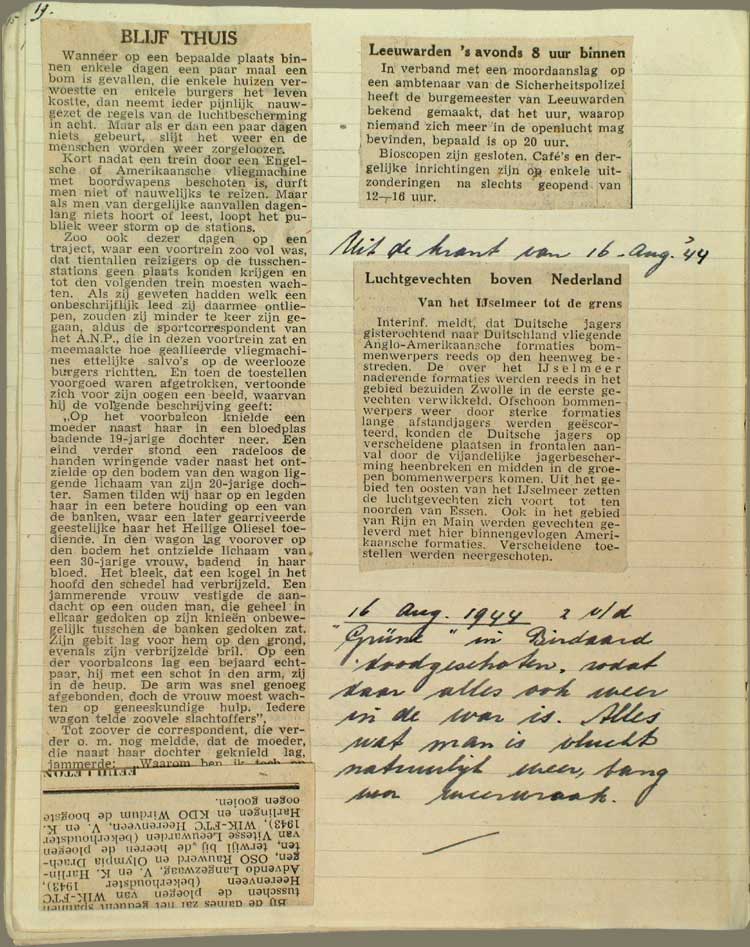 19.
BLIJF THUIS
Wanneer op een bepaalde plaats bin-
nen enkele dagen een paar maal een
bom is gevallen, die enkele huizen ver-
woestte en enkele burgers het leven
kostte, dan neemt ieder pijnlijk nauw-
gezet de regels van de luchtbescherming
in acht. Maar als er dan een paar dagen
niets gebeurt, slijt het weer en de
menschen worden weer zorgeloozer.
Kort nadat een trein door een Engel-
sche of Amerikaansche vliegmachine
met boordwapens beschoten is, durft
men niet of nauwelijks te reizen. Maar
als men van dergelijke aanvallen dagen-
lang niets hoort of leest, loopt het pu-
bliek weer storm op de stations.
Zoo ook dezer dagen op een
traject, waar een voortrein zoo vol was,
dat tientallen reizigers op de tusschen-
stations geen plaats konden krijgen en
tot den volgenden trein moesten wach-
ten. Als zij geweten hadden welk een
onbeschrijflijk leed zij daarmee ontlie-
pen, zouden zij minder te keer zijn ge-
gaan, aldus de sportcorrespondent van
het A.N.P., die in dezen voortrein zat en
meemaakte hoe geallieerde vliegmachi-
nes ettelijke salvo's op de weerlooze
burgers richtten. En toen de toestellen
voorgoed waren afgetrokken, vertoonde
zich voor zijn oogen een beeld, waarvan
hij de volgende beschrijving geeft:
„Op het voorbalcon knielde een
moeder naast haar in een bloedplas
badende 19-jarige dochter neer. Een
eind verder stond een radeloos de
handen wringende vader naast het ont-
zielde op den bodem van den wagon lig-
gende lichaam van zijn 20-jarige doch-
ter. Samen tilden wij haar op en legden
haar in een betere houding op een van
de banken, waar een later gearriveerde
geestelijke haar het Heilige Oliesel toe-
diende. In den wagon lag voorover op
den bodem het ontzielde lichaam van
een 30-jarige vrouw, badend in haar
bloed. Het bleek, dat een kogel in het
hoofd den schedel had verbrijzeld. Een
jammerende vrouw vestigde de aan-
dacht op een ouden man, die geheel in
elkaar gedoken op zijn knieën onbewe-
gelijk tusschen de banken gedoken zat.
Zijn gebit lag voor hem op den grond,
evenals zijn verbrijzelde bril. Op een
der voorbalcons lag een bejaard echt-
paar, hij met een schot in den arm, zij
in de heup. De arm was snel genoeg
afgebonden, doch de vrouw moest wach-
ten op geneeskundige hulp. Iedere
wagon telde zoovele slachtoffers”,
Tot zoover de correspondent, die ver-
der o. m. nog meldde, dat de moeder,
die naast haar dochter geknield lag,
jammerde: „Waarom ben ik toch op
FEUILLETON
Bij de dames zal het geducht spannen
tusschen de ploegen van WIK-FTC
Heerenveen (bekerhoudster 1943),
Advendo Langezwaag, V. en K. Harlin-
gen, OSO Rauwerd en Olympia Drach-
ten, terwijl bij de heeren de ploegen
van Vitesse Leeuwarden (bekerhoudster
1943), WIK-FTC Heerenveen, V. en K.
Harlingen en KDO Wirdum de hoogste
oogen gooien.
Leeuwarden 's avonds 8 uur binnen
In verband met een moordaanslag op
een ambtenaar van de Sicherheitspolizei
heeft de burgemeester van Leeuwarden
bekend gemaakt, dat het uur, waarop
niemand zich meer in de openlucht mag
bevinden, bepaald is op 20 uur.
Bioscopen zijn gesloten. Café's en der-
gelijke inrichtingen zijn op enkele uit-
zonderingen na slechts geopend van
12—16 uur.
Uit de krant van 16 - Aug. '44
Luchtgevechten boven Nederland
Van het IJselmeer tot de grens
Interinf. meldt, dat Duitsche jagers
gisterochtend naar Duitschland vliegende
Anglo-Amerikaansche formaties bom-
menwerpers reeds op den heenweg be-
streden. De over het IJselmeer
naderende formaties werden reeds in het
gebied bezuiden Zwolle in de eerste ge-
vechten verwikkeld. Ofschoon bommen-
werpers weer door sterke formaties
lange afstandjagers werden geëscor-
teerd, konden de Duitsche jagers op
verscheidene plaatsen in frontalen aan-
val door de vijandelijke jagerbescher-
ming heenbreken en midden in de groe-
pen bommenwerpers komen. Uit het ge-
bied ten oosten van het IJselmeer zetten
de luchtgevechten zich voort tot ten
noorden van Essen. Ook in het gebied
van Rijn en Main werden gevechten ge-
leverd met hier binnengevlogen Ameri-
kaansche formaties. Verscheidene toe-
stellen werden neergeschoten.
16 Aug. 1944 2 v/d
"Grüne" in Birdaard
doodgeschoten, zodat
daar alles ook weer
in de war is. Alles
wat man is vlucht
natuurlijk weer, bang
voor weerwraak.